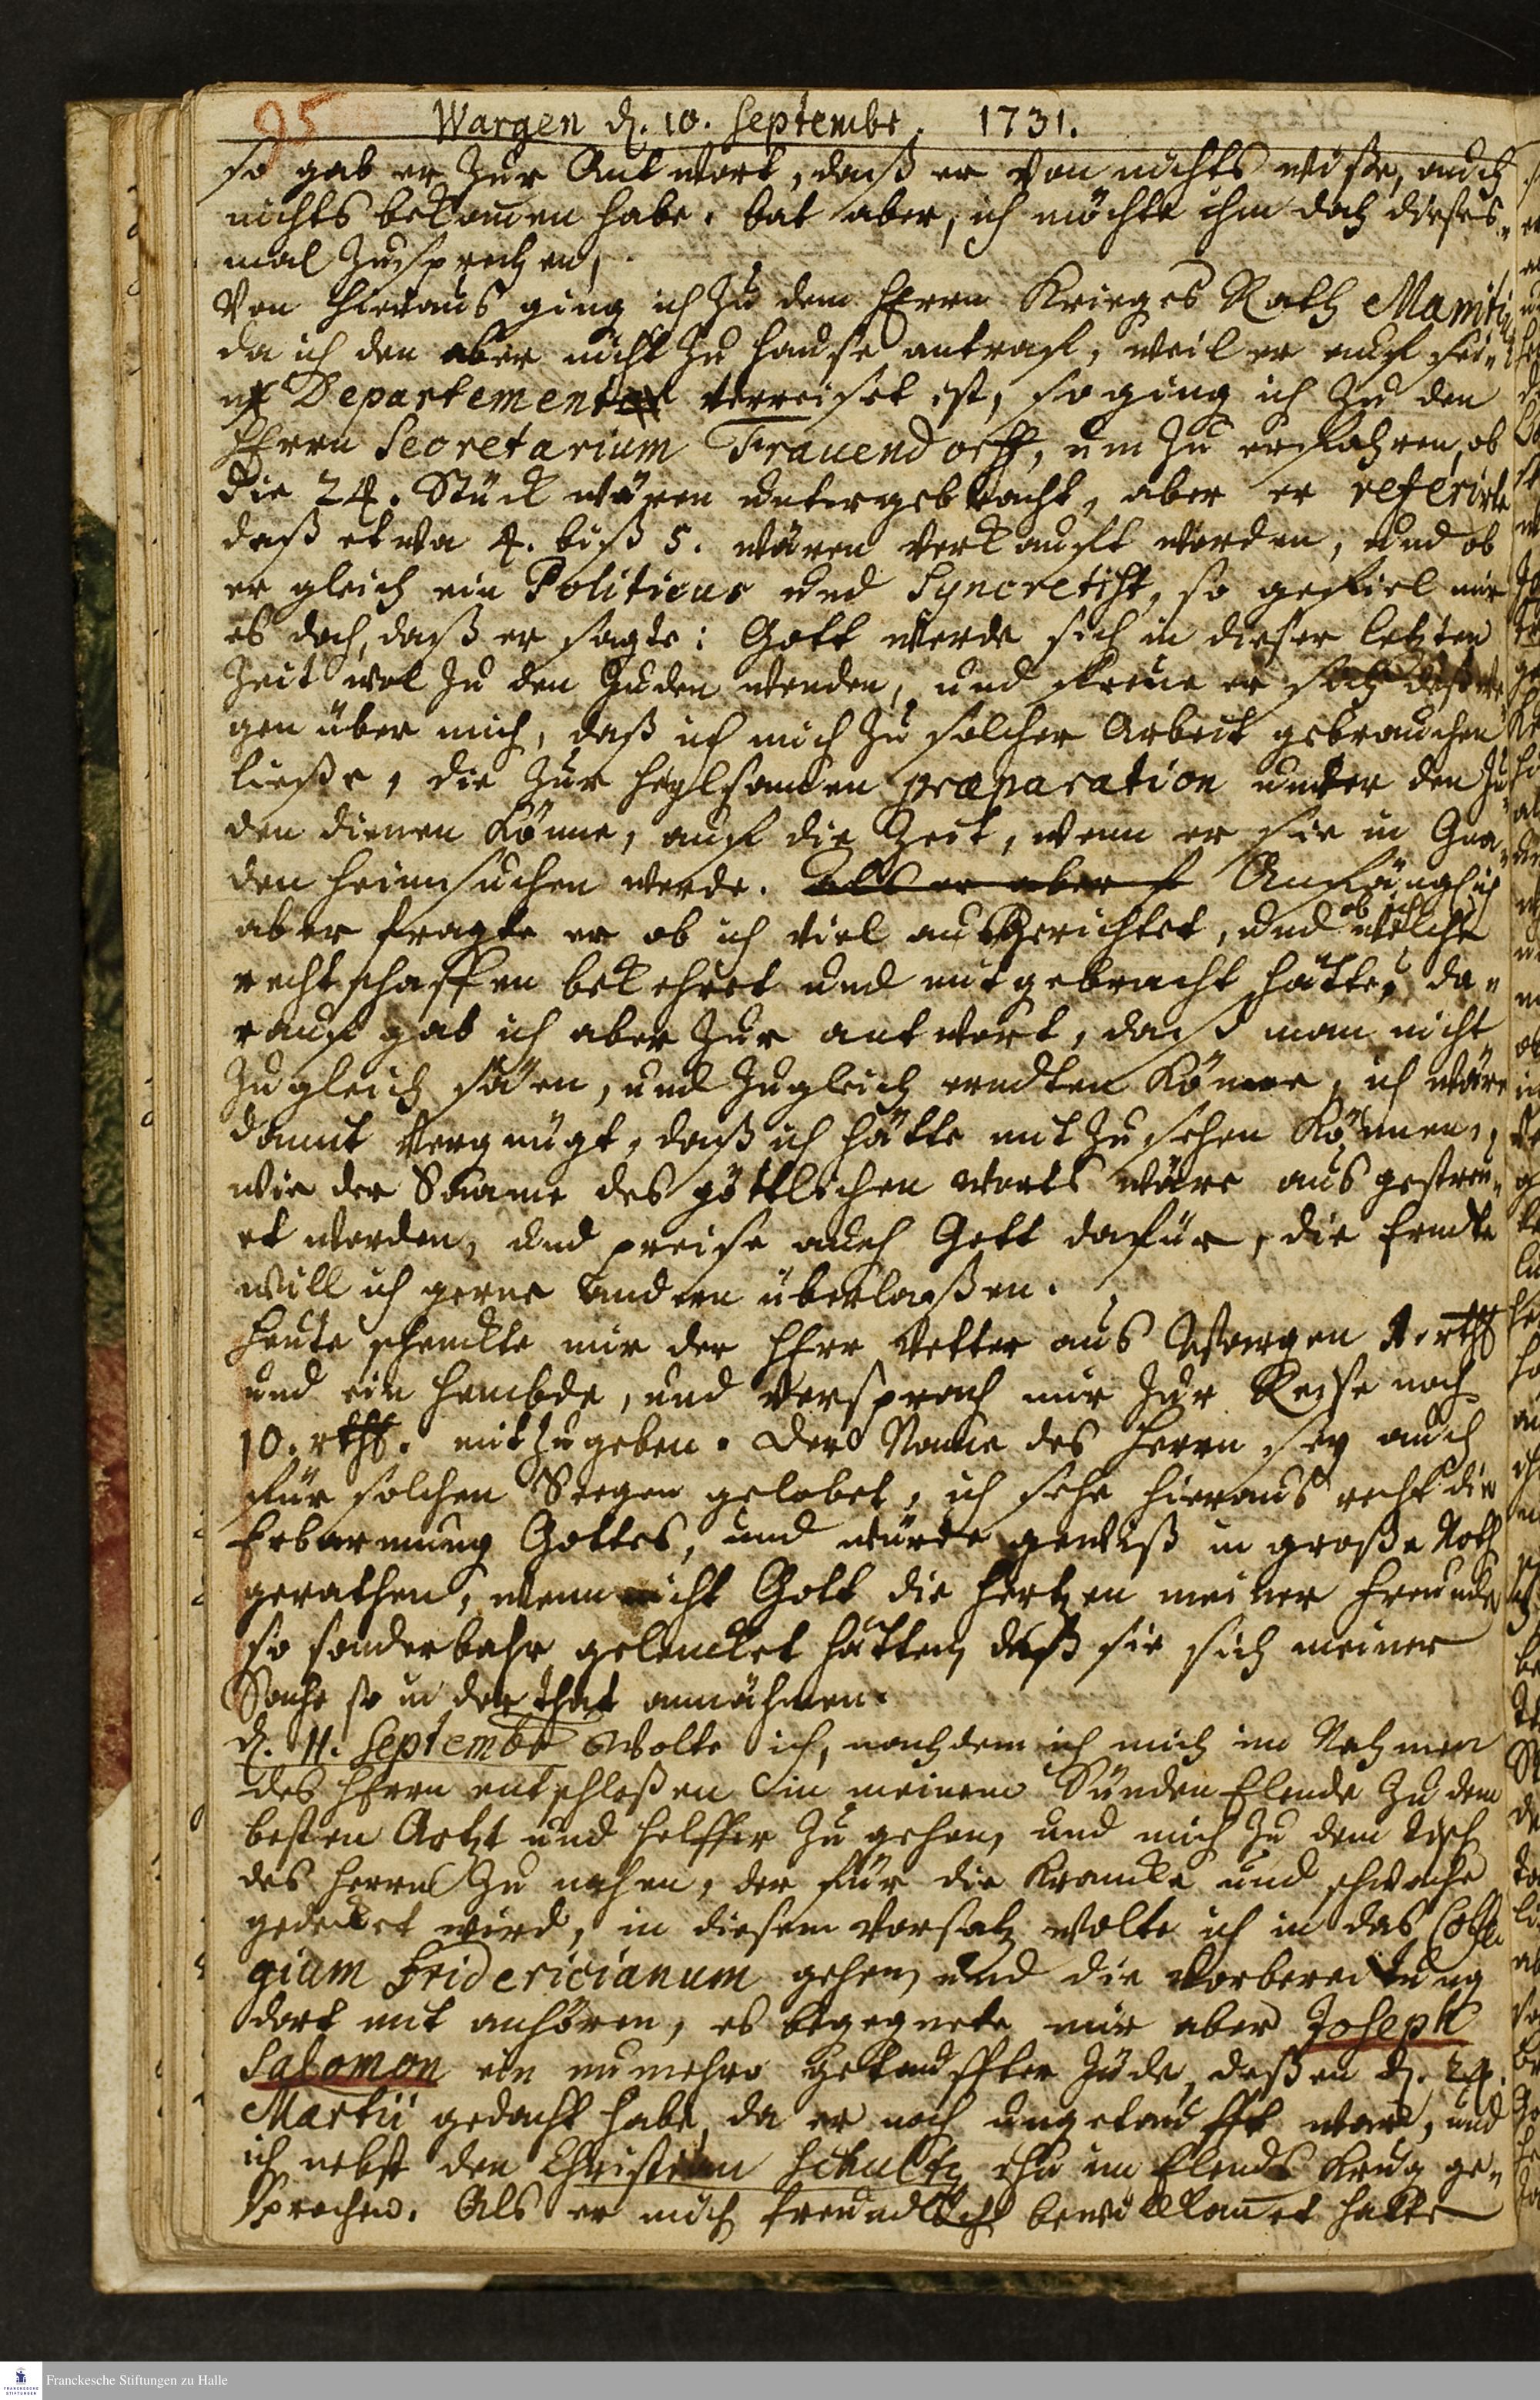 95 Wargen d. 10. Septembr. 1731.
so gab er zur Antwort, daß er von nichts wüste, auch
nichts bekom̃en habe. bat aber, ich möchte ihm doch dieses-
mal zusprechen,
Von hieraus ging ich zu dem HErrn Krieges Rath Manitiu
da ich den aber nicht zu Hause antraf, weil er auf sei-
n Departement verreiset ist, so ging ich zu den
HErrn Secretarium Frauendorff, um zu erfahren, ob
die 24. Stück wären untergebracht, aber er referirte
daß etwa 4. biß 5. wären verkaufft worden, und ob
er gleich ein Politicus und Syncretist, so gefiel mir
es doch, daß er sagte: Gott werde sich in dieser letzten
Zeit wol zu den Juden wenden, und freue er sich deßwe
gen über mich, daß ich mich zu solcher Arbeit gebrauchen
ließe, die zur heylsamen præparation unter den Ju-
den dienen könne, auf die Zeit, wenn er sie in Gna-
den heimsuchen werde. als er aber Anfänglich
aber fragte er ob ich viel ausgerichtet, und ob ich welche
rechtschaffen bekehret und mitgebracht hätte, da-
rauf gab ich aber zur antwort, daß man nicht
zugleich säen, und zugleich erndten könne, ich wäre
damit vergnügt, daß ich hätte mit zusehen können,
wie der Saame des göttlichen Worts wäre ausgestreu-
et worden, und preise auch Gott dafür, die Erndte
will ich gerne andern überlaßen.
Heute schenckte mir der HErr Vetter aus Wargen rthl
und ein Hembde, und versprach mir zur Reise noch
10. rthl. mitzugeben. Der Name des Herrn sey auch
für solchen Seegen gelobet, ich sehe hieraus recht die
Erbarmung Gottes, und würde gewiß in große Noth
gerathen, wenn nicht Gott die Hertzen meiner Freunde
so sonderbahr gelencket hätten, daß sie sich meiner
Sache so in der that annähmen.
d. 11. Septembr Wolte ich, nachdem ich mich im Nahmen
des HErrn entschloßen in meinem Sünden Elende zu dem
besten Artzt und Helffer zu gehen, und mich zu dem Tisch
des Herrn zu nahen, der für die Krancke und schwache
gedecket wird, in diesem Vorsatz wolte ich in das Colle
gium Fridericianum gehen, und die Vorbereitung
dort mit anhören, es begegnete mir aber Joseph
Salomon ein nunmehro getauffter Jude, deßen d. 24.
Martii gedacht habe, da er noch ungetaufft war, und
ich nebst den Christian Schultz ihn im Elends Krug ge-
sprochen. Als er mich freundlich bewillkom̃et hatte
Franckesche Stiftungen zu Halle